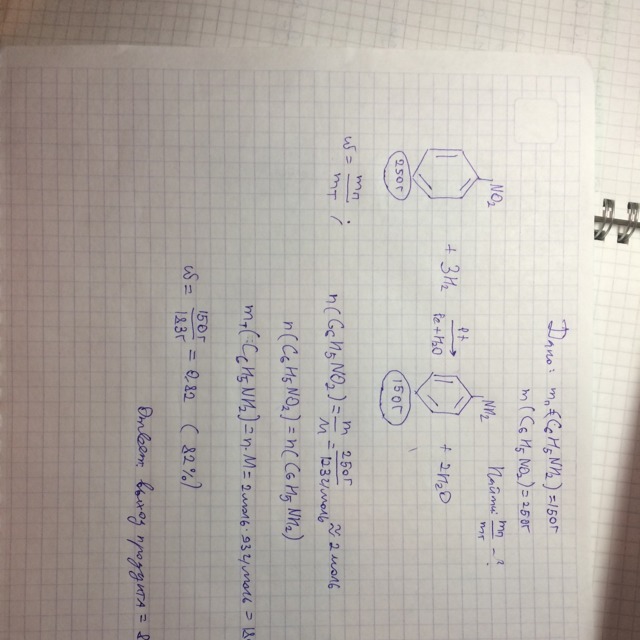 Дано: mп (C6H5NH2) = 150г
m (C6H5NO2) = 250г
Найти: mп/mт - ?
NO2 + 3H2 → NH2 + 2H2O
250г 150г
ω = mп/mт ;
n(C6H5NO2) = m/M = 250г/123г/моль ≈ 2 моль
n(C6H5NO2) = n(C6H5NH2)
mт(C6H5NH2) = n·M = 2моль·93г/моль = 18
ω = 150г/183г = 0,82 (82%)
Ответ: выход продукта = 8